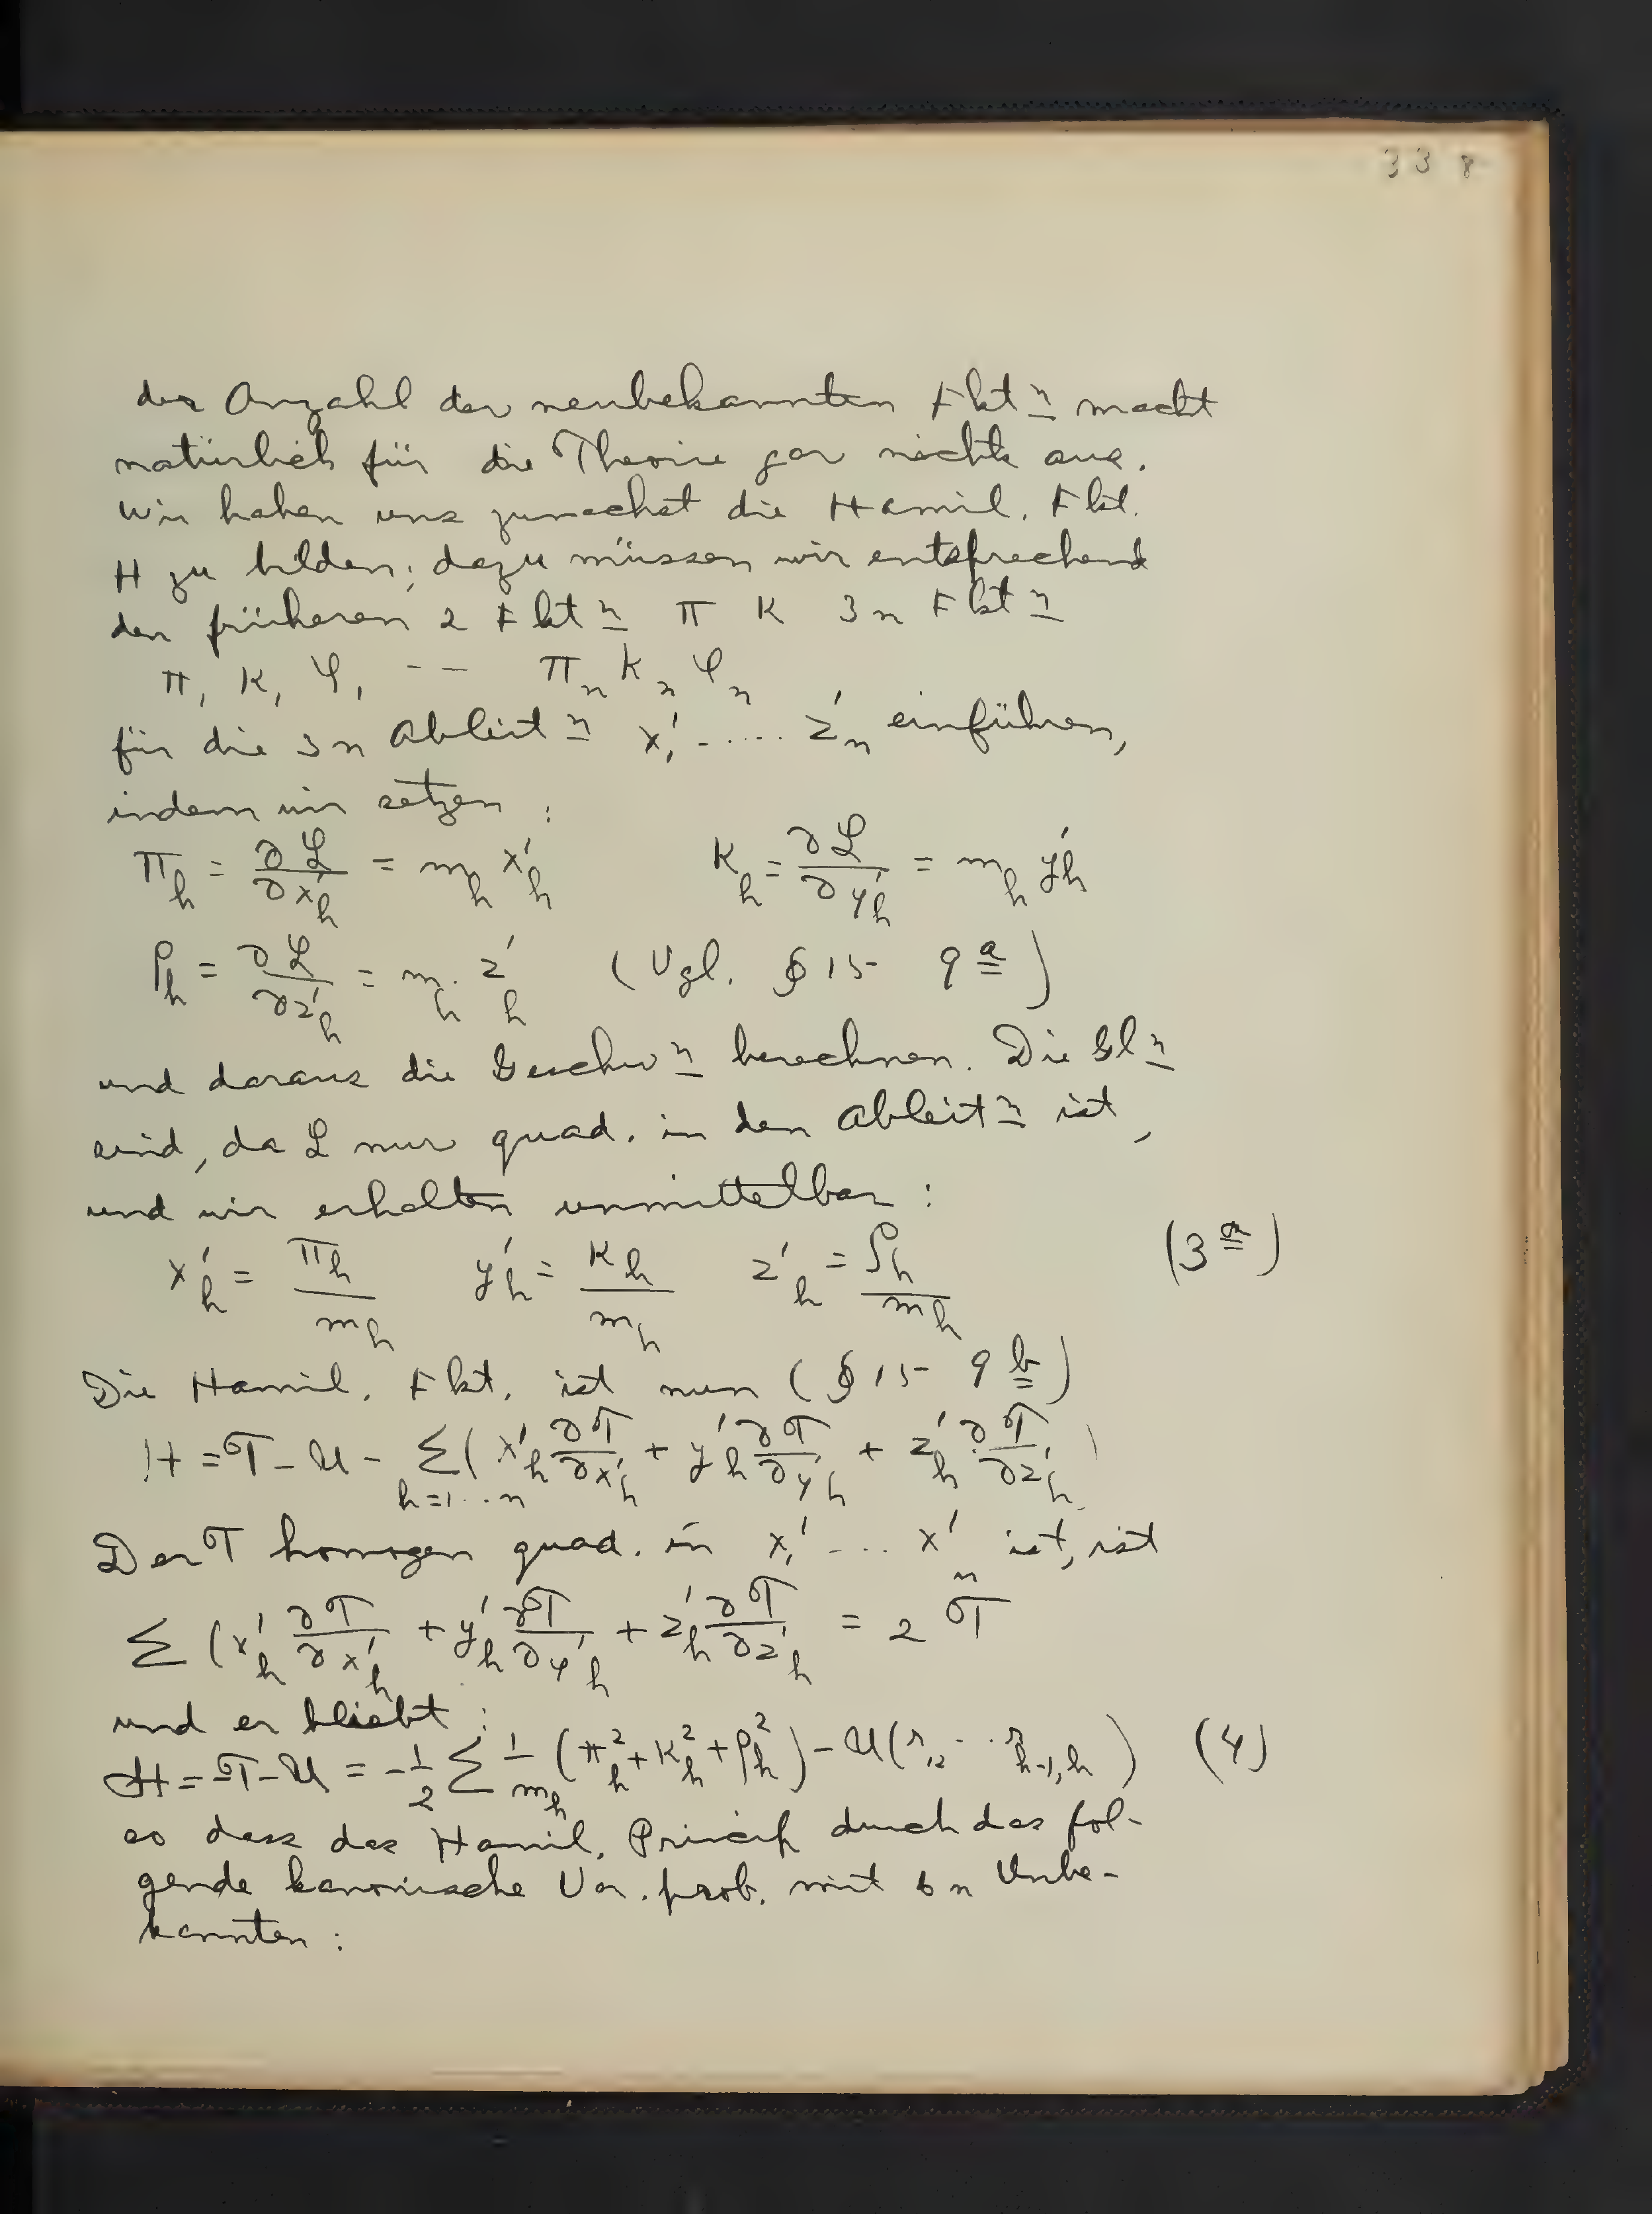 338
der Anzahl der neubekannten Fkt<sup>n</sup> macht
natürlich für die Theorie gar nichts aus.
Wir haben uns zunachst die Hamil. Fkt.
H zu bilden; dazu müssen wir entsprechend
den früheren 2 Fkt<sup>n</sup> π κ 3n Fkt<sup>n</sup>
π₁ κ₁ φ₁ -- πₙ κₙ φₙ
für die 3n Ableit<sup>n</sup> x₁' ..... zₙ' einführen,
indem wir setzen :
π_h = ∂L/∂x'_h = m_h x'_h    κ_h = ∂L/∂y'_h = m_h y'_h
ρ_h = ∂L/∂z'_h = m_h . z'_h    (Vgl. § 15 9<sup>a</sup>)
und daraus die Geschw<sup>n</sup> berechnen. Die Gl<sup>n</sup>
sind, da L nur quad. in den Ableit<sup>n</sup> ist,
und wir erhalten unmittelbar :
x'_h = π_h/m_h    y'_h = κ_h/m_h    z'_h = ρ_h/m_h    (3<sup>a</sup>)
Die Hamil. Fkt. ist nun (§ 15 9<sup>b</sup>)
H = T - U - Σ_{h=1..n} ( x'_h ∂T/∂x'_h + y'_h ∂T/∂y'_h + z'_h ∂T/∂z'_h )
Der T homogen quad. in x₁' ... x'ₙ ist, ist
Σ (x'_h ∂T/∂x'_h + y'_h ∂T/∂y'_h + z'_h ∂T/∂z'_h = 2 T
und er bliebt :
H = -T-U = -1/2 Σ 1/m_h (π_h² + κ_h² + ρ_h²) - U(r₁₂ .. r_{h-1,h})    (4)
so dass das Hamil. Princip durch das fol-
gende kanonische Var. prob. mit 6n Unbe-
kannten :